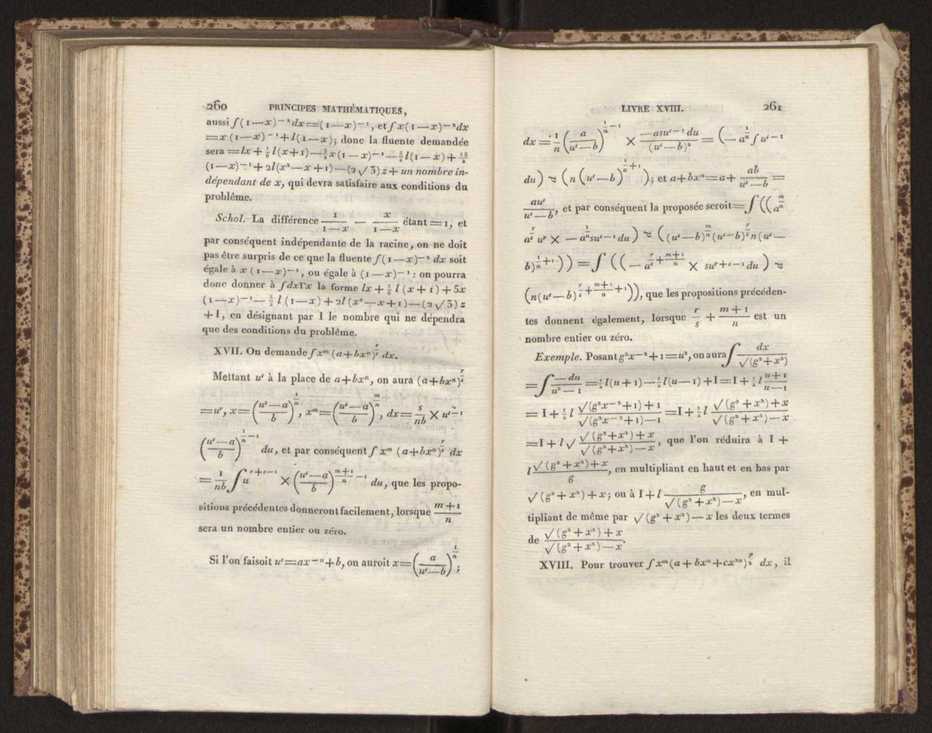 260 PRINCIPES MATHÉMATIQUES,
aussi ∫(1—x)⁻²dx=(1—x)⁻¹, et ∫x(1—x)⁻²dx
=x(1—x)⁻¹+l(1—x); donc la fluente demandée
dépendant de x, qui devra satisfaire aux conditions du
problême.
Schol. La différence 1/(1—x) — x/(1—x) étant=1, et
par conséquent indépendante de la racine, on ne doit
pas être surpris de ce que la fluente ∫(1—x)⁻² dx soit
égale à x (1—x)⁻¹, ou égale à (1—x)⁻¹: on pourra
donc donner à ∫dxΓx la forme lx + ½ l (x + 1) + 5x
(1—x)⁻¹— l (1—x) + 2l (x²—x+1)—(2√3) z
+I, en désignant par I le nombre qui ne dépendra
que des conditions du problême.
XVII. On demande ∫xᵐ (a+bxⁿ)^(r/s) dx.
Mettant uˢ à la place de a+bxⁿ, on aura (a+bxⁿ)^(r/s)
=uʳ, x=((uˢ—a)/b)^(1/n), xᵐ=((uˢ—a)/b)^(m/n), dx=s/nb × uˢ⁻¹
((uˢ—a)/b)^(1/n —1) du, et par conséquent ∫xᵐ (a+bxⁿ)^(r/s) dx
=s/nb ∫u^(r+s—1) × ((uˢ—a)/b)^((m+1)/n —1) du, que les propo-
sitions précédentes donneront facilement, lorsque (m+1)/n
sera un nombre entier ou zéro.
Si l'on faisoit uˢ=ax⁻ⁿ+b, on auroit x=(a/(uˢ—b))^(1/n);
LIVRE XVIII. 261
dx=1/n (a/(uˢ—b))^(1/n —1) × —asuˢ⁻¹ du/(uˢ—b)² = (—a^(1/n) s uˢ⁻¹
du) ÷ (n (uˢ—b)^(1/n +1)); et a+bxⁿ=a+ ab/(uˢ—b) =
auˢ/(uˢ—b), et par conséquent la proposée seroit=∫((a^(m/n)
a^(r/s) uʳ × —a^(1/n)suˢ⁻¹du) ÷ ((uˢ—b)^(m/n)(uˢ—b)^(r/s)n(uˢ—
b)^(1/n +1))=∫((—a^(r/s + (m+1)/n) × su^(r+s—1)du) ÷
(n(uˢ—b)^(r/s + (m+1)/n +1)), que les propositions précéden-
tes donnent également, lorsque r/s + (m+1)/n est un
nombre entier ou zéro.
Exemple. Posant g²x⁻²+1=u², on aura ∫dx/√(g²+x²)
=∫—du/(u²—1)=½l(u+1)—½l(u—1)+I=I+½l (u+1)/(u—1)
=I+½l (√(g²x⁻²+1)+1)/(√(g²x⁻²+1)—1)=I+½l (√(g²+x²)+x)/(√(g²+x²)—x)
=I+l√ (√(g²+x²)+x)/(√(g²+x²)—x), que l'on réduira à I +
l (√(g²+x²)+x)/g, en multipliant en haut et en bas par
√(g²+x²)+x; ou à I+l g/(√(g²+x²)—x), en mul-
tipliant de même par √(g²+x²)—x les deux termes
de (√(g²+x²)+x)/(√(g²+x²)—x).
XVIII. Pour trouver ∫xᵐ(a+bxⁿ+cx²ⁿ)^(r/s) dx, il